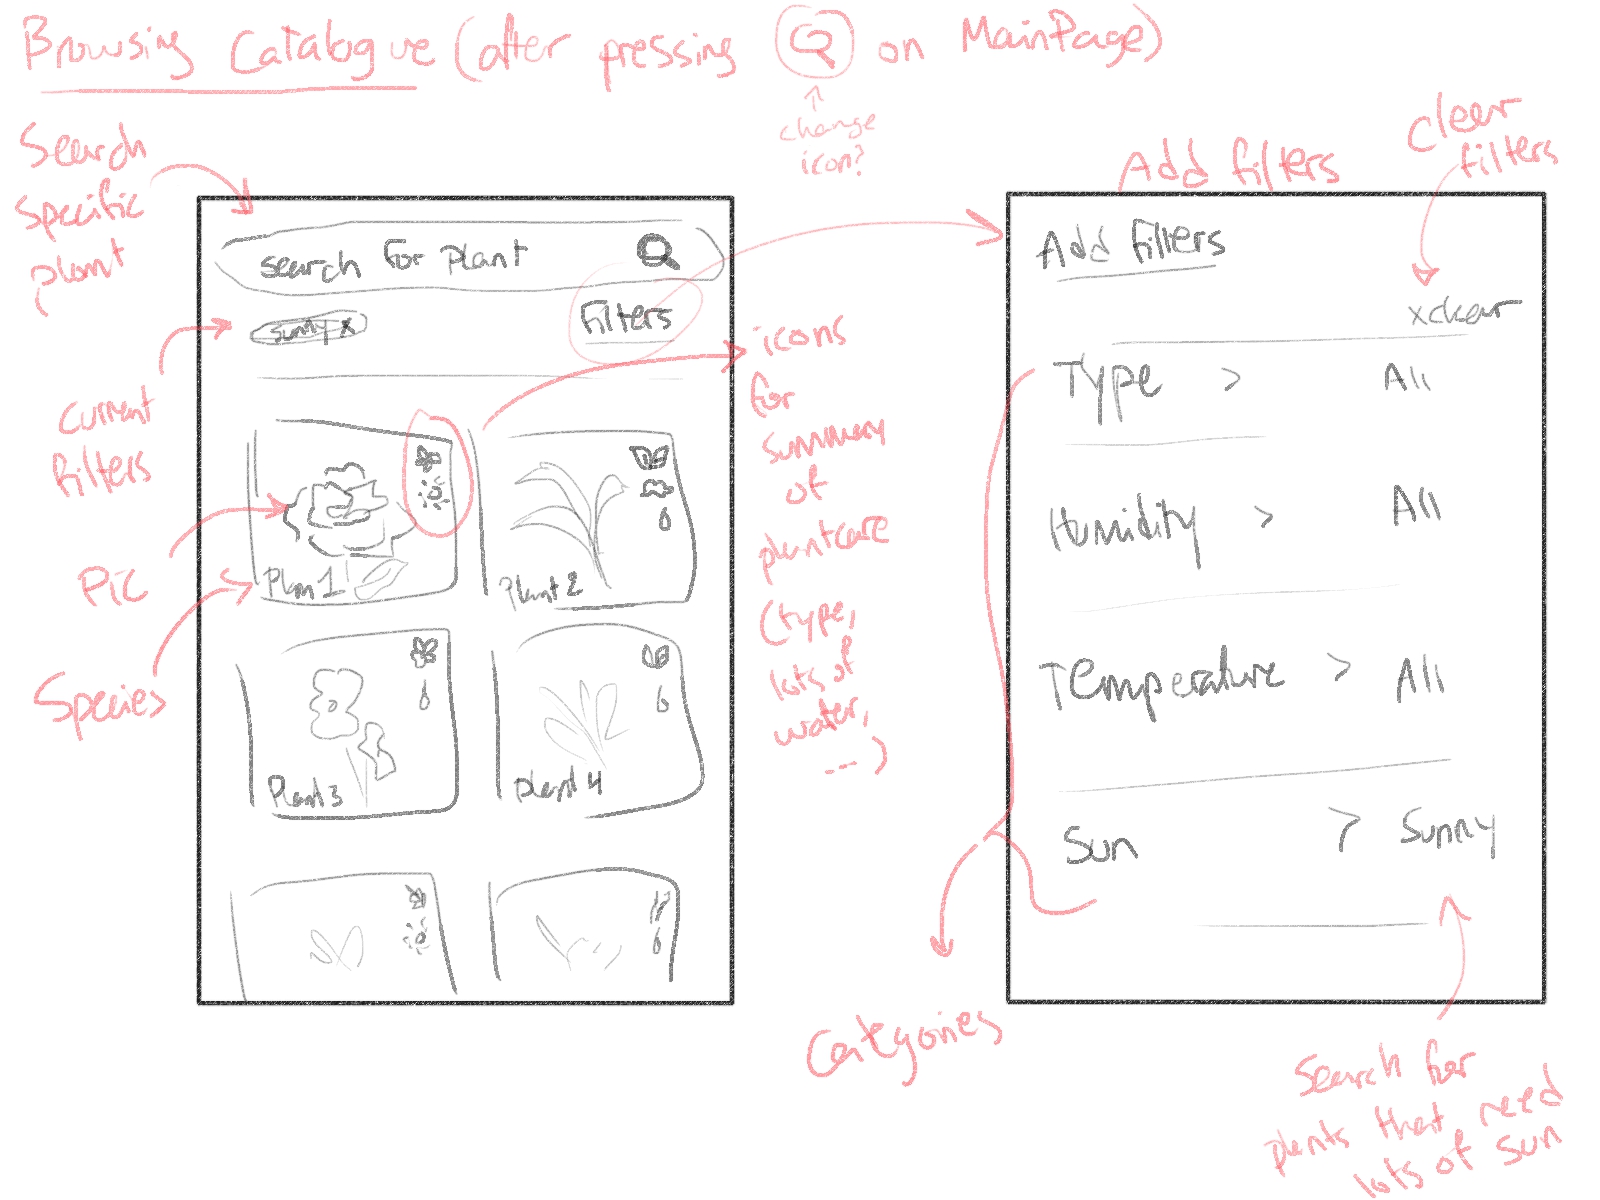 Browsing Catalogue (after pressing Q on MainPage)
change
icon?
Search
specific
plant
current
filters
Pic
Species
search for plant
sunny x
filters
Plan 1
Plant 2
Plant 3
plant 4
icons
for
summary
of
plantcare
(type,
lots of
water,
...)
Add filters
clear
filters
Add filters
x clear
Type > All
Humidity > All
Temperature > All
Sun > Sunny
Categories
Search for
plants that need
lots of sun